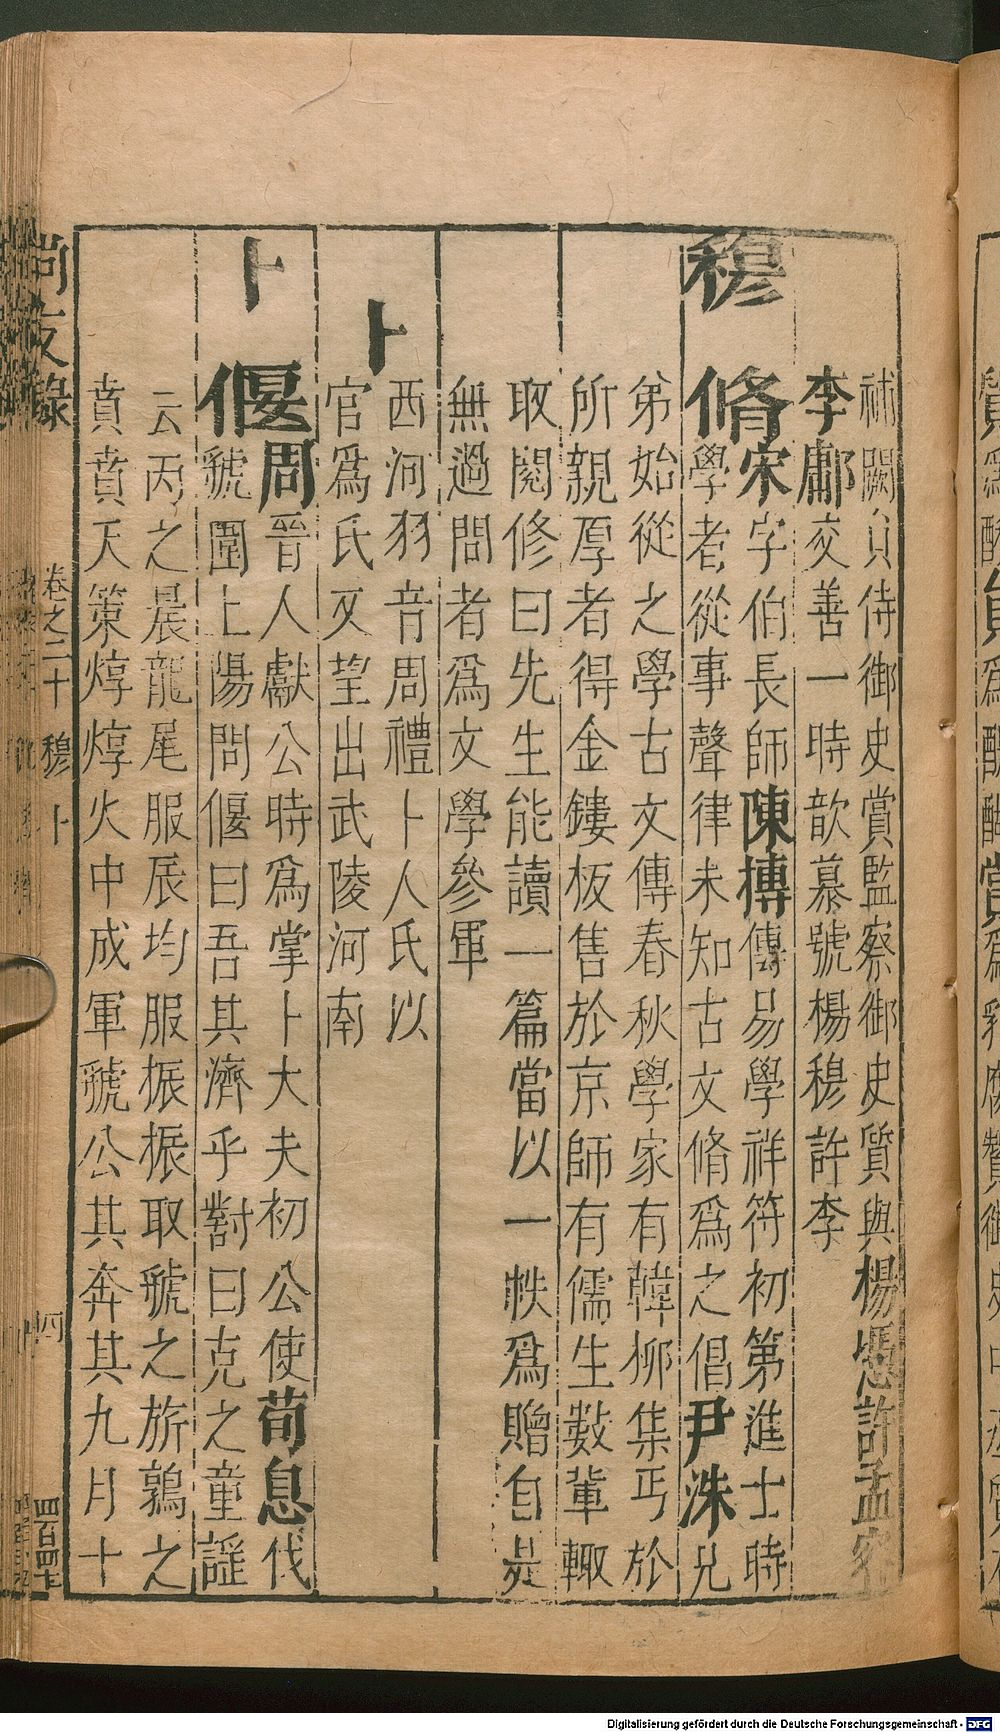 補闕員侍御史賞監察御史質與楊憑許孟容
李鄘交善一時歆慕號楊穆許李
穆脩宋字伯長師陳摶傳易學祥符初第進士時
學者從事聲律未知古文脩爲之倡尹洙兄
弟始從之學古文傳春秋學家有韓柳集丐於
所親厚者得金鏤板售於京師有儒生數輩輙
取閱修曰先生能讀一篇當以一帙爲贈自是
無過問者爲文學參軍
卜
西河羽音周禮卜人氏以
官爲氏又望出武陵河南
卜偃周晉人獻公時爲掌卜大夫初公使荀息伐
虢圍上陽問偃曰吾其濟乎對曰克之童謡
云丙之晨龍尾服辰均服振振取虢之旂鶉之
賁賁天策焞焞火中成軍虢公其奔其九月十
尚友錄 卷之二十 穆 卜 四
Digitalisierung gefördert durch die Deutsche Forschungsgemeinschaft - DFG